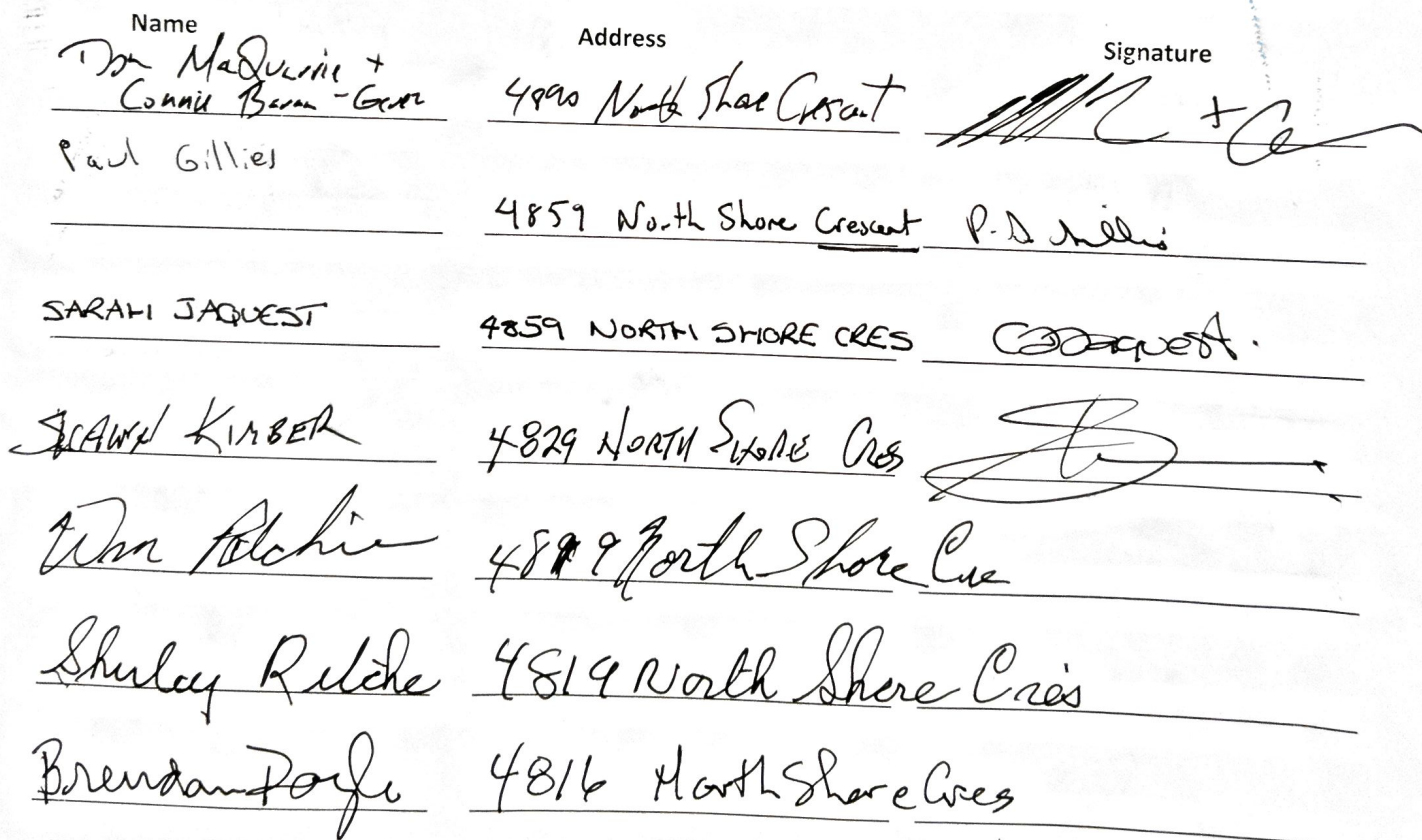 Name Address Signature
Don MaQuarrie +
Connie 4890 North Shore Crescent +
Paul Gillies
4859 North Shore Crescent P. D. Gillies
SARAH JAQUEST 4859 NORTH SHORE CRES Jaquest.
SHAWN KIMBER 4829 NORTH SHORE Cres
Wm Ritchie 4819 North Shore Cre
Shirley Ritchie 4819 North Shore Cres
Brendan Doyle 4816 North Shore Cres